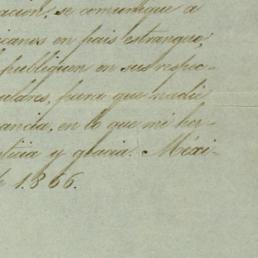 acion, se comunique a
icanos en pais estrangero,
publiquen en sus respec-
ulares, para que nadie
ancia, en lo que mi
ticia y gracia. Méxi-
1866.